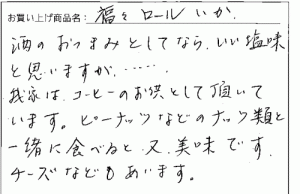 お買い上げ商品名： 福々ロールいか.
酒のおつまみとしてなら、いい塩味
と思いますが、……
我家は、コーヒーのお供として頂いて
います。ピーナッツなどのナッツ類と
一緒に食べると、又、美味です。
チーズなどもあいます。